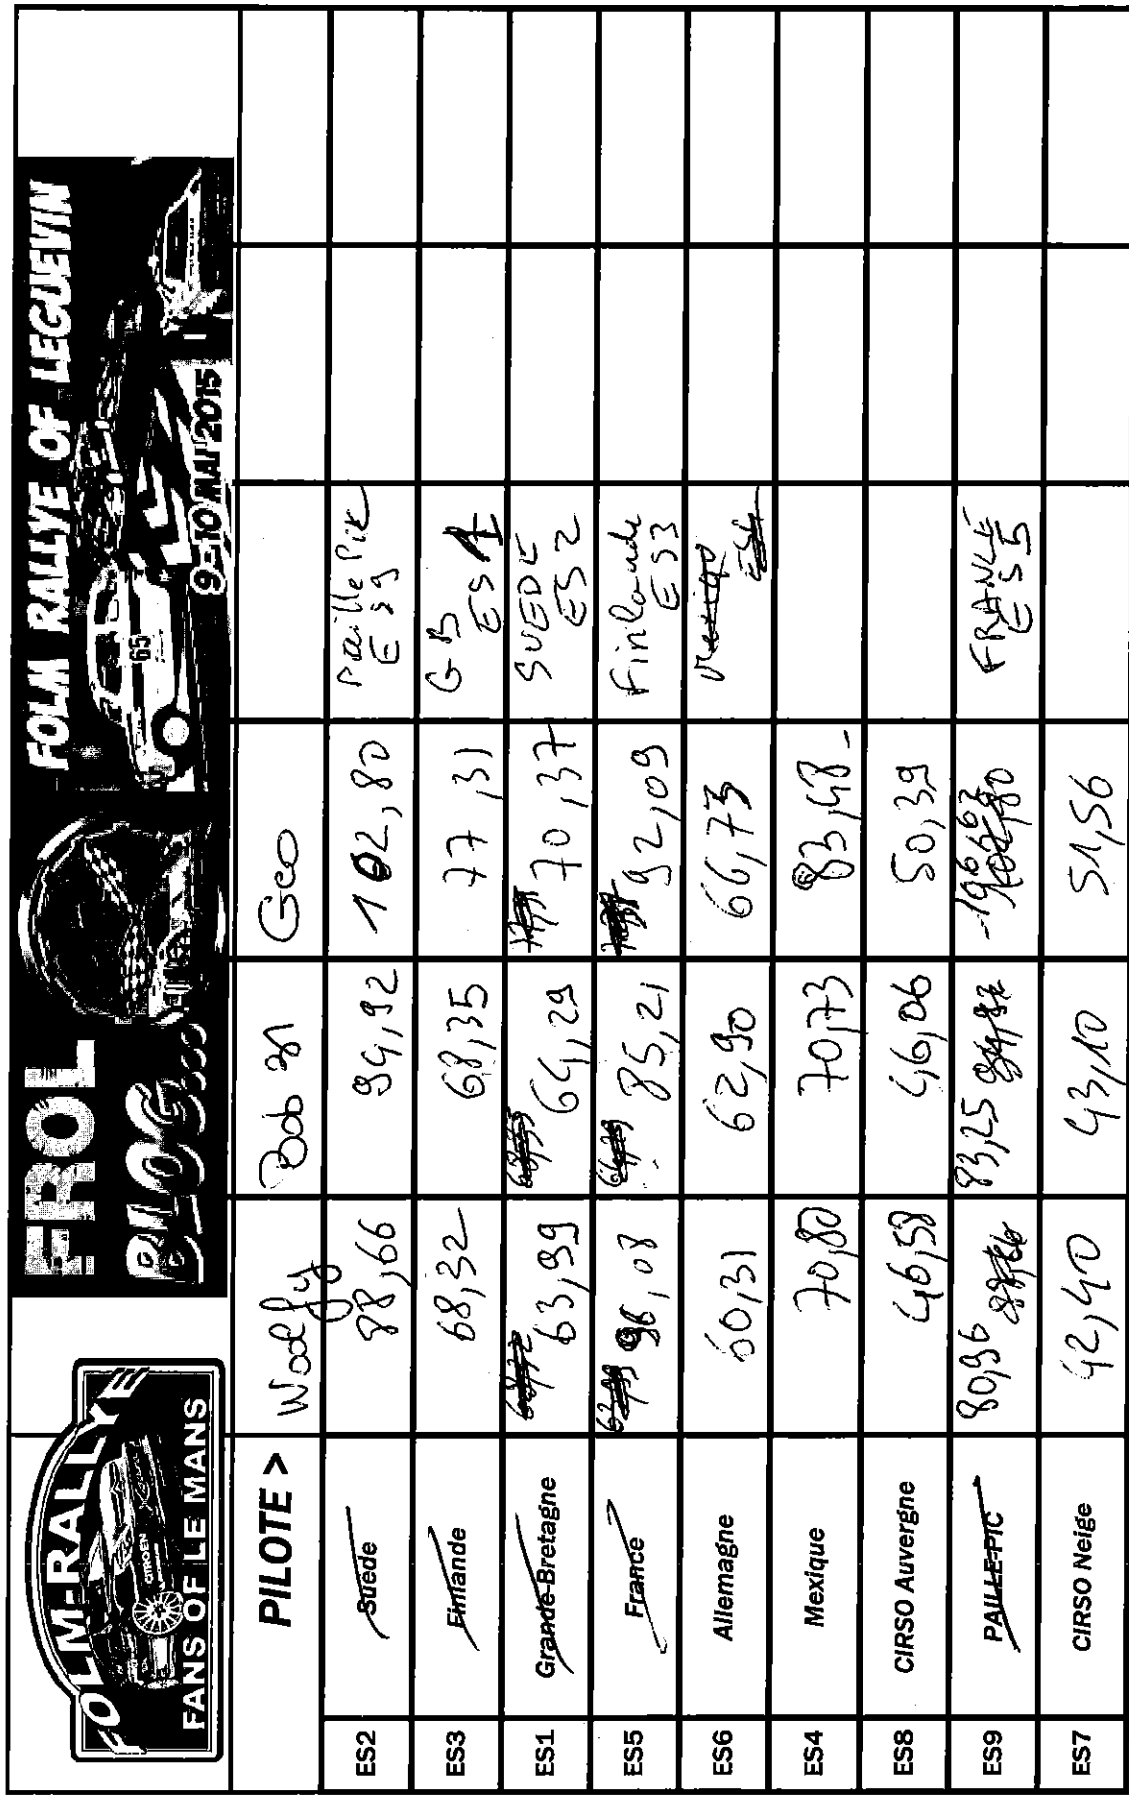 FOLM-RALLYE
FANS OF LE MANS
FROL
BLOG...
FOLM RALLYE OF LEGUEVIN
65
9-10 MAI 2015
PILOTE > Woolfy Bob 31 Geo
ES2 Suède 88,66 94,92 102,80 Paille Pic
ES9
ES3 Finlande 68,32 68,35 77,31 GB
ES1
ES1 Grande-Bretagne 63,99 64,29 70,37 SUEDE
ES2
ES5 France 96,08 85,21 92,09 Finlande
ES3
ES6 Allemagne 60,31 62,90 66,73
ES4 Mexique 70,80 70,73 83,48 -
ES8 CIRSO Auvergne 46,58 46,06 50,39
ES9 PAILLE-PIC 80,96 88,66 83,25 94,92 102,80 FRANCE
ES5
ES7 CIRSO Neige 42,40 43,10 51,56